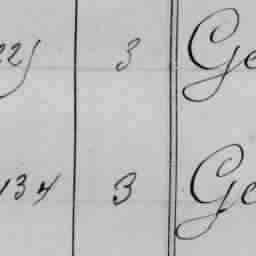 221 3 Ge
134 3 Ge